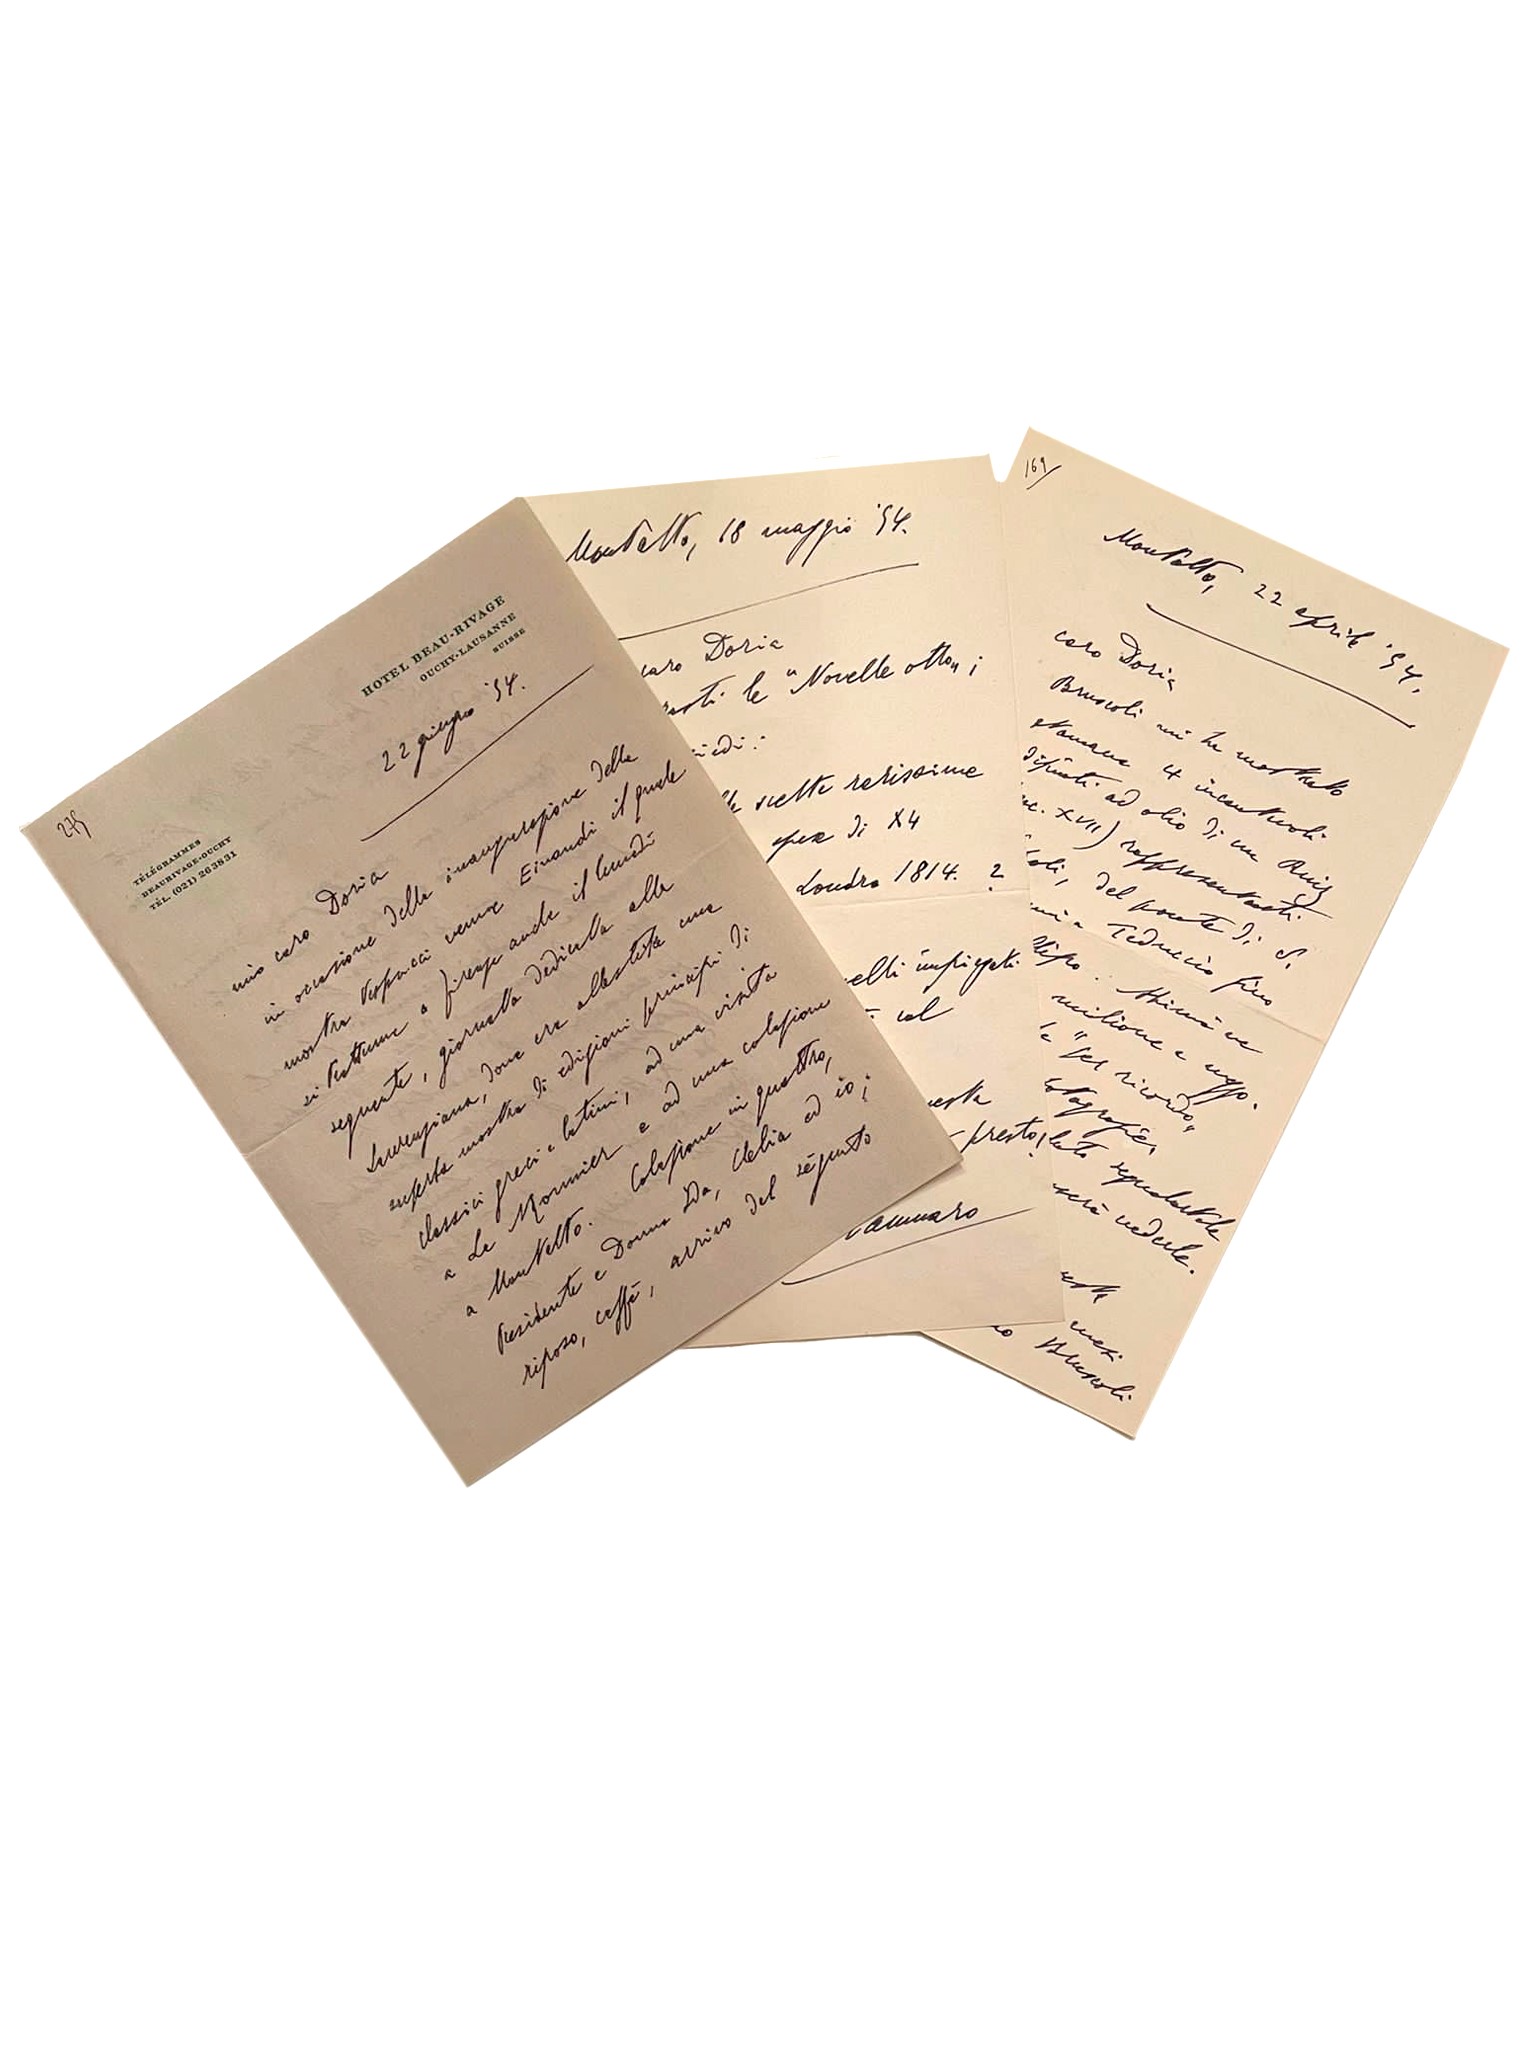 275
HOTEL BEAU-RIVAGE
OUCHY-LAUSANNE
SUISSE
TÉLÉGRAMMES
BEAURIVAGE-OUCHY
TÉL. (021) 26 38 31
22 giugno '54.
mio caro Doria
in occasione della inaugurazione della
mostra Vespucci venne Einaudi il quale
si trattenne a firenze anche il lunedì
seguente, giornata dedicata alla
Laurenziana, dove era allestita una
superba mostra di edizioni principi di
classici greci e latini, ad una visita
a Le Monnier e ad una colazione
a Montalto. Colazione in quattro,
Presidente e Donna Ida, Clelia ed io;
riposo, caffè, arrivo del seguito
Montalto, 18 maggio '54.
caro Doria
le "Novelle otto";
scelta rarissima
di X4
Londra 1814. ?
impiegati
col
presto!
169
Montalto, 22 aprile '54.
caro Doria
Bruscoli mi ha mostrato
4 incantevoli
dipinti ad olio di un Ruiz
XVII) rappresentanti
del ponte di S.
Teduccio fino
milione e mezzo.
"Bel ricordo"
fotografie,
vederle.
mesi
Bruscoli